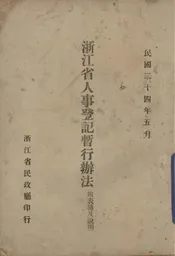 民國二十四年五月
浙江省人事登記暫行辦法
附表簿及說明
浙江省民政廳印行